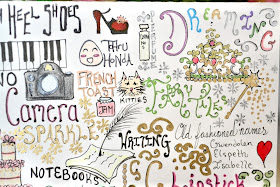 HEEL SHOES
DREAMING
NO
Camera
FRENCH
TOAST
JAM
KITTIES
FAIRY TALE
SPARKLE
WRITING
NOTEBOOKS
Old fashioned names
Gwendolen
Elspeth
Isabelle
Lipstick